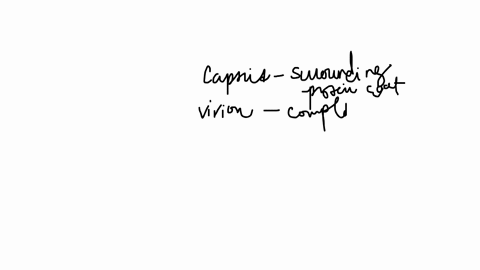 Capsis - surrounding
protein coat
virion - compl